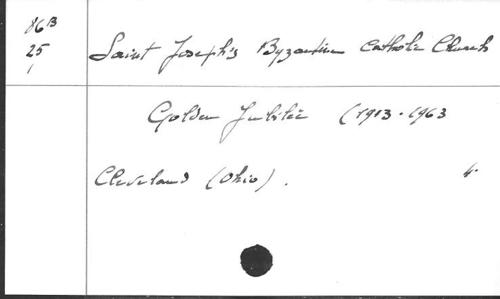 86B
25
1
Saint Joseph's Byzantine Catholic Church
Golden Jubilée (1913-1963
Cleveland (Ohio).
4°